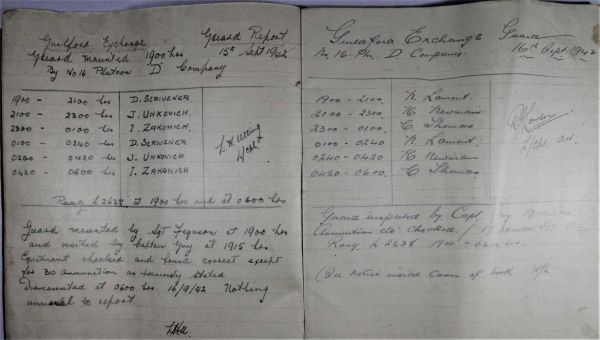 Guilford Exchange Guard Report
Guard mounted 1900 hrs 15th Sept 1942
By No 16 Platoon "D" Company
1900 - 2100 hrs D. SCRIVENER
2100 - 2300 hrs J. UNKOVICH.
2300 - 0100 hrs I. ZAKONICH.
0100 - 0240 hrs D. SCRIVENER
0200 - 0420 hrs J. UNKOVICH
0420 - 0600 hrs I. ZAKONICH
L/Cpl
Rang L2638 at 1900 hrs and at 0600 hrs
Guard mounted by Sgt Ferguson at 1900 hrs
and visited by Captain Guy at 1915 hrs
Equitment checked and found correct except
for 30 ammunition as previously stated
Dismounted at 0600 hrs 16/9/42 Nothing
unusual to report.
Exchange Guard
No 16 Pltn. D Company. 16th Sept 1942
1900 - 2100. N. Lamont.
2100 - 2300. K. Newman
2300 - 0100. C. Thomas
0100 - 0240 N. Lamont.
0240 - 0420 K. Newman
0420 - 0600. C. Thomas
L/Cpl.
Guard inspected by Capt. Guy 1900 hrs
Ammunition checked
Rang L 2638 1900 0600 hrs
(See notice inside cover of book